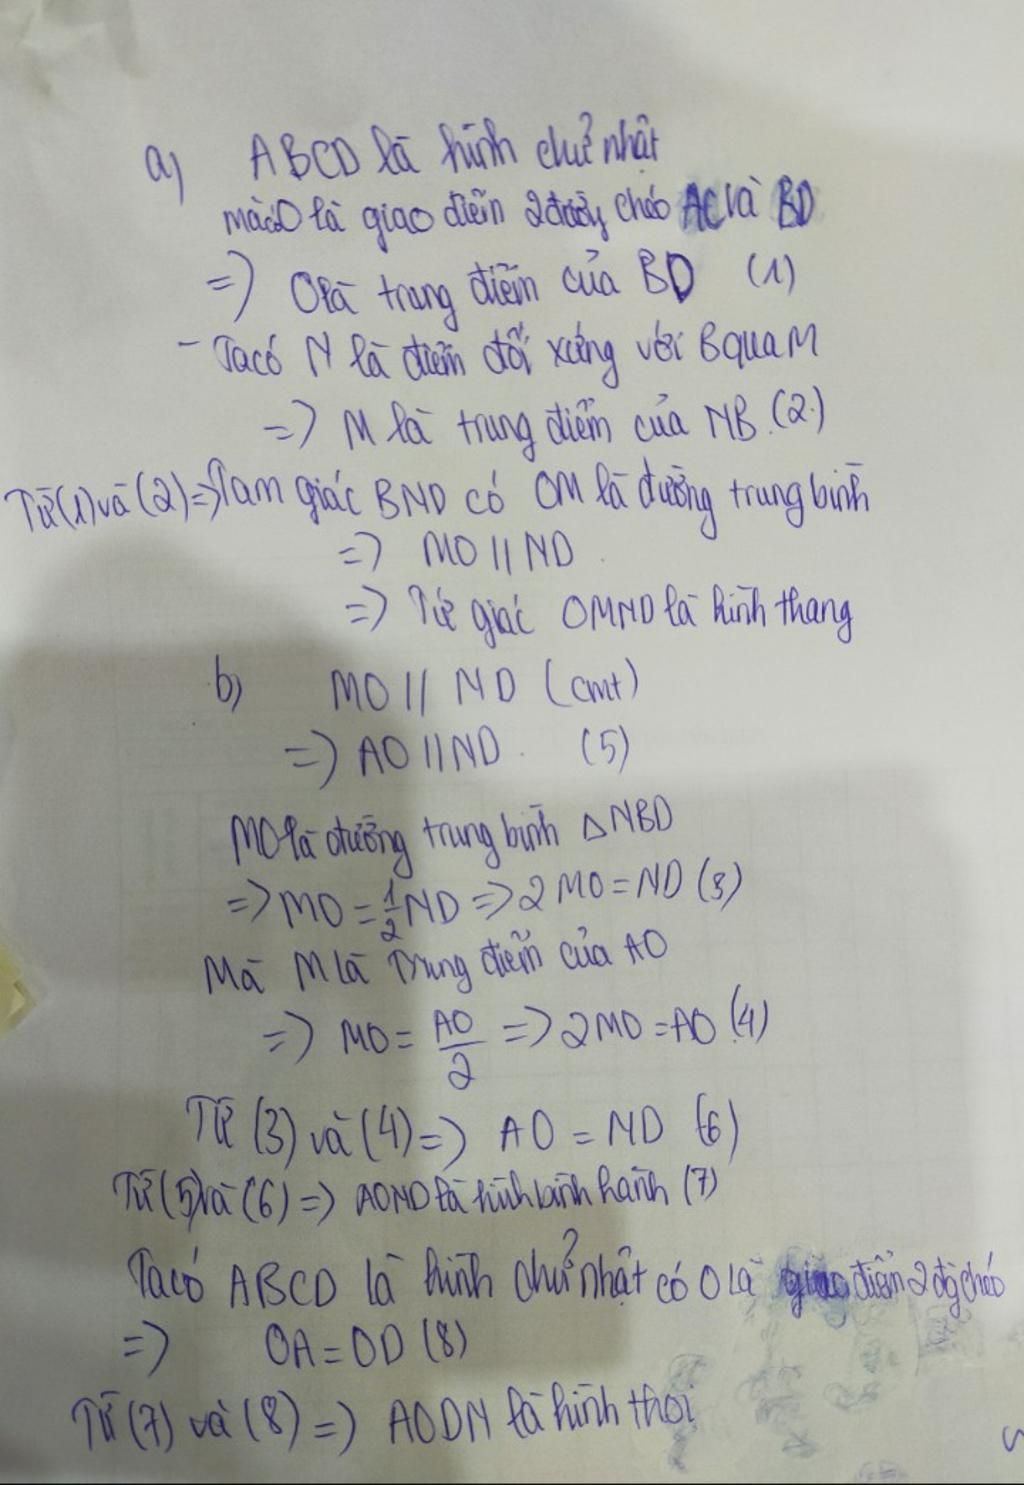 a) ABCD là hình chữ nhật
mà O là giao điểm 2 đường chéo AC và BD
=> O là trung điểm của BD (1)
- Ta có N là điểm đối xứng với B qua M
=> M là trung điểm của NB. (2)
Từ (1) và (2) => Tam giác BND có OM là đường trung bình
=> MO // ND
=> Tứ giác OMND là hình thang
b) MO // ND (cmt)
=> AO // ND. (5)
MO là đường trung bình △NBD
=> MO = 1/2 ND => 2MO = ND (3)
Mà M là Trung điểm của AO
=> MO = AO/2 => 2MO = AO (4)
Từ (3) và (4) => AO = ND (6)
Từ (5) và (6) => AOND là hình bình hành (7)
Ta có ABCD là hình chữ nhật có O là giao điểm 2 đg chéo
=> OA = OD (8)
Từ (7) và (8) => AODN là hình thoi